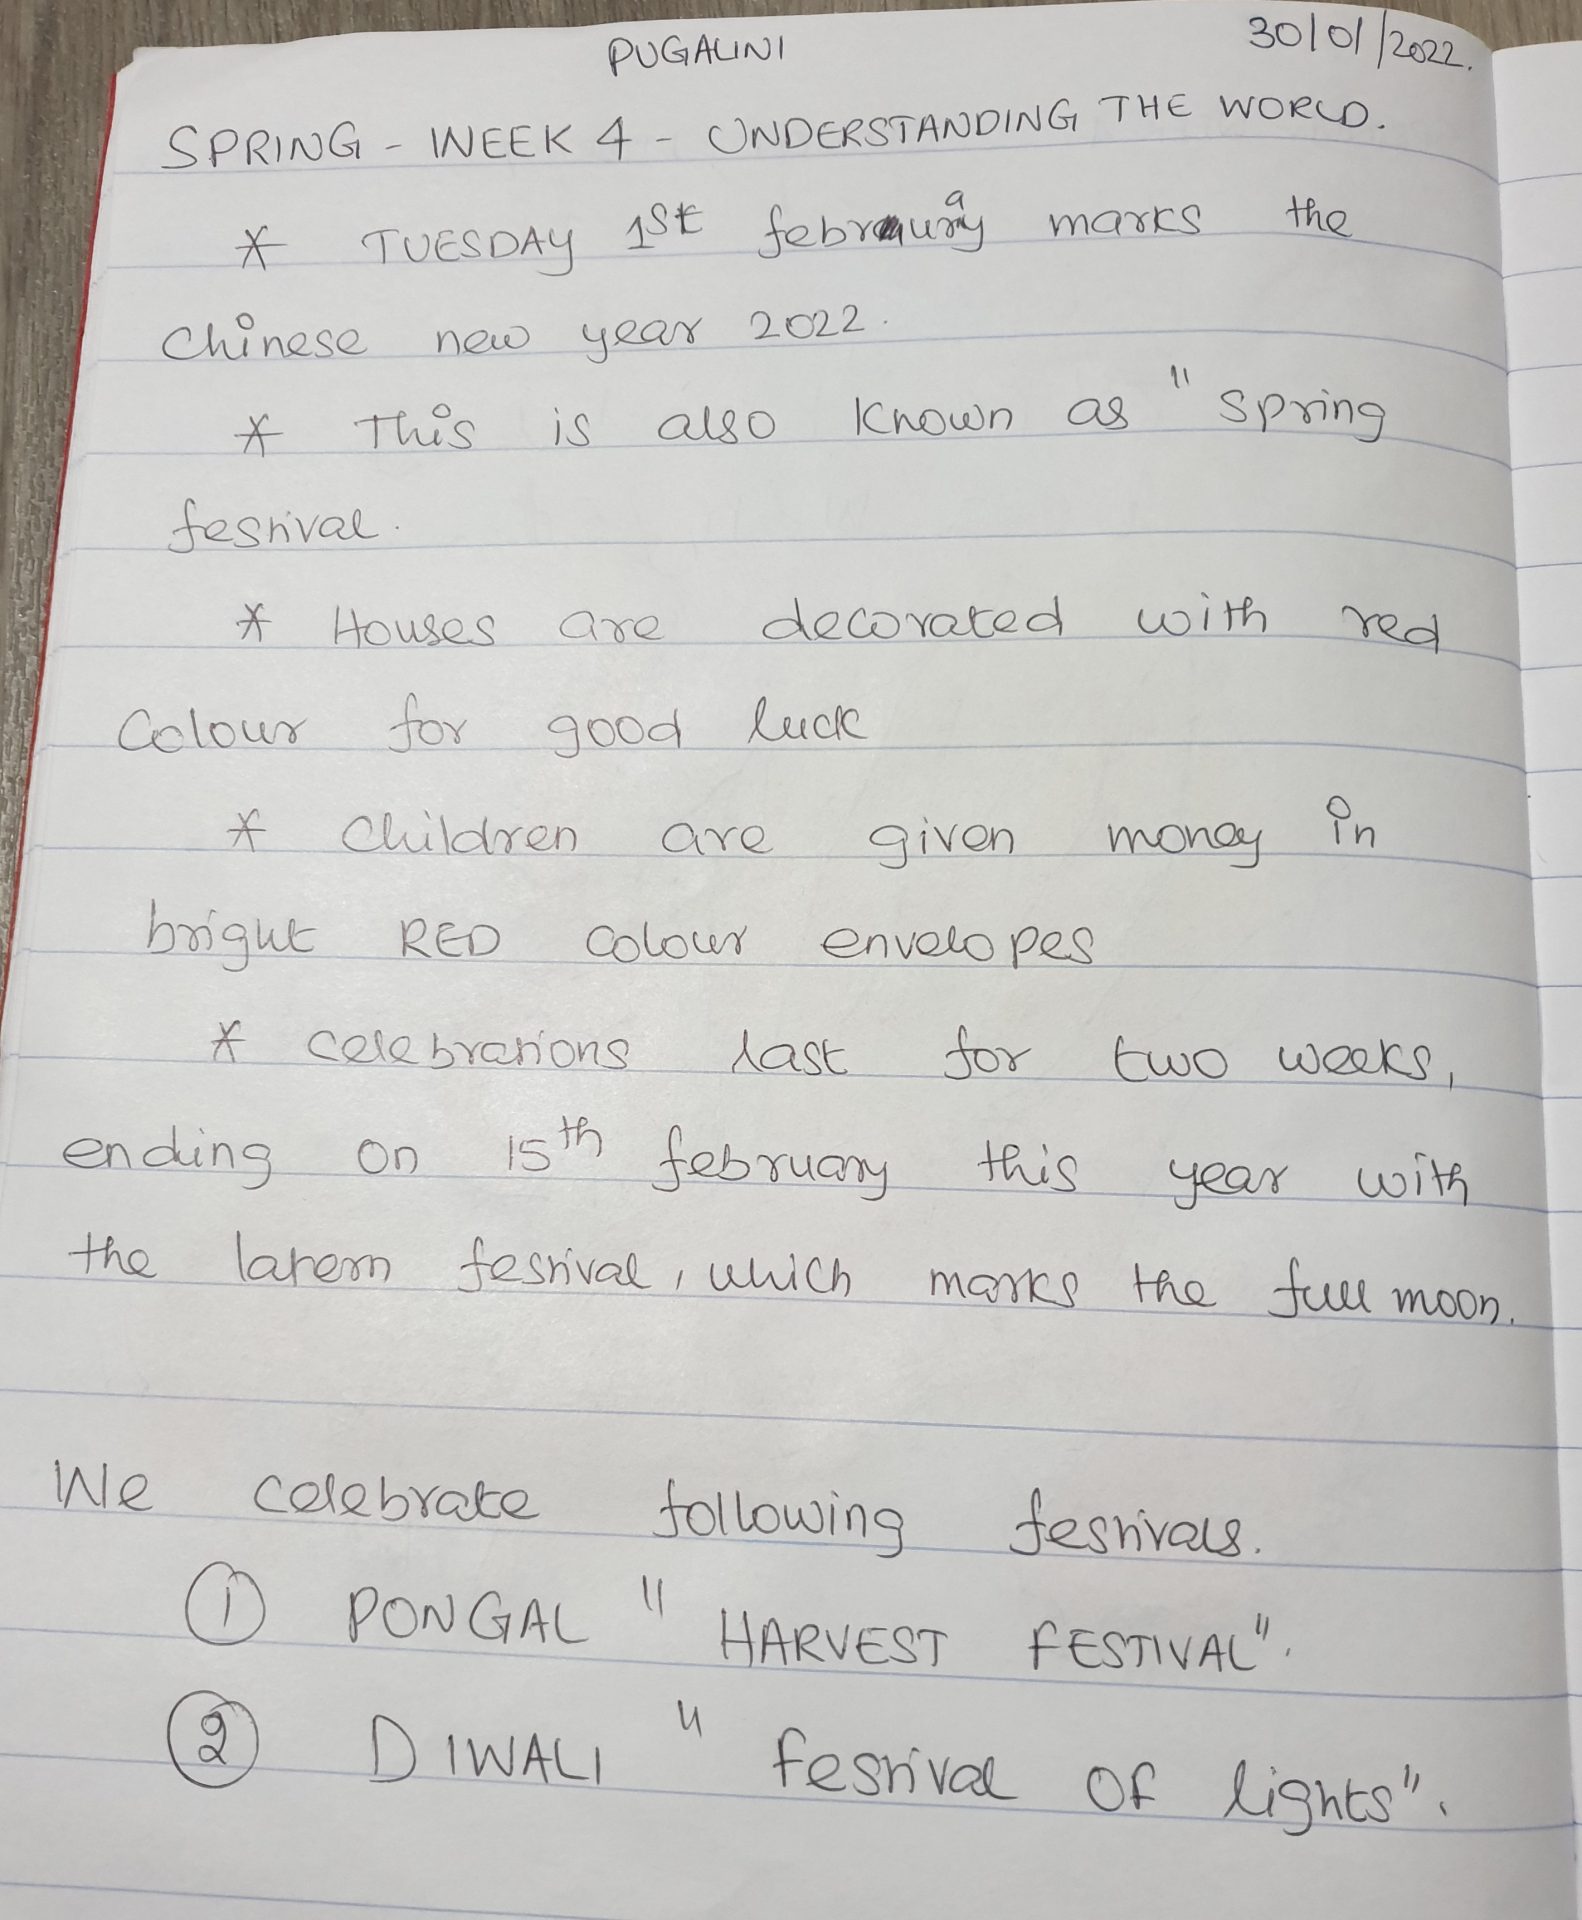 PUGALINI
30/01/2022.
SPRING - WEEK 4 - UNDERSTANDING THE WORLD.
* TUESDAY 1st february marks the
Chinese new year 2022.
* This is also known as "Spring
festival.
* Houses are decorated with red
Colour for good luck
* Children are given money in
bright RED colour envelopes
* celebrations last for two weeks,
ending on 15th february this year with
the latern festival, which marks the full moon.
We celebrate following festivals.
① PONGAL "HARVEST FESTIVAL".
② DIWALI "festival OF lights".